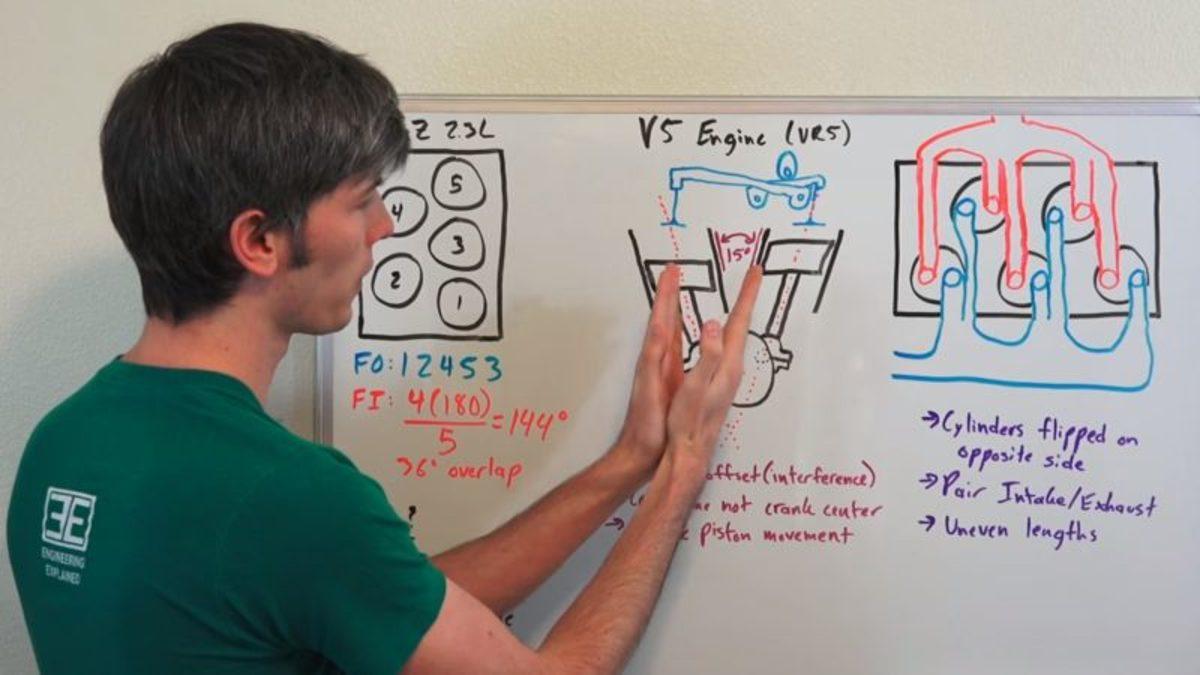 Z 2.3L
5
4
3
2
1
FO: 12453
FI: 4(180)
5
=144°
36° overlap
?
V5 Engine (VR5)
15°
offset (interference)
not crank center
piston movement
→ Cylinders flipped on
opposite side
→ Pair Intake/Exhaust
→ Uneven lengths
EE
ENGINEERING
EXPLAINED